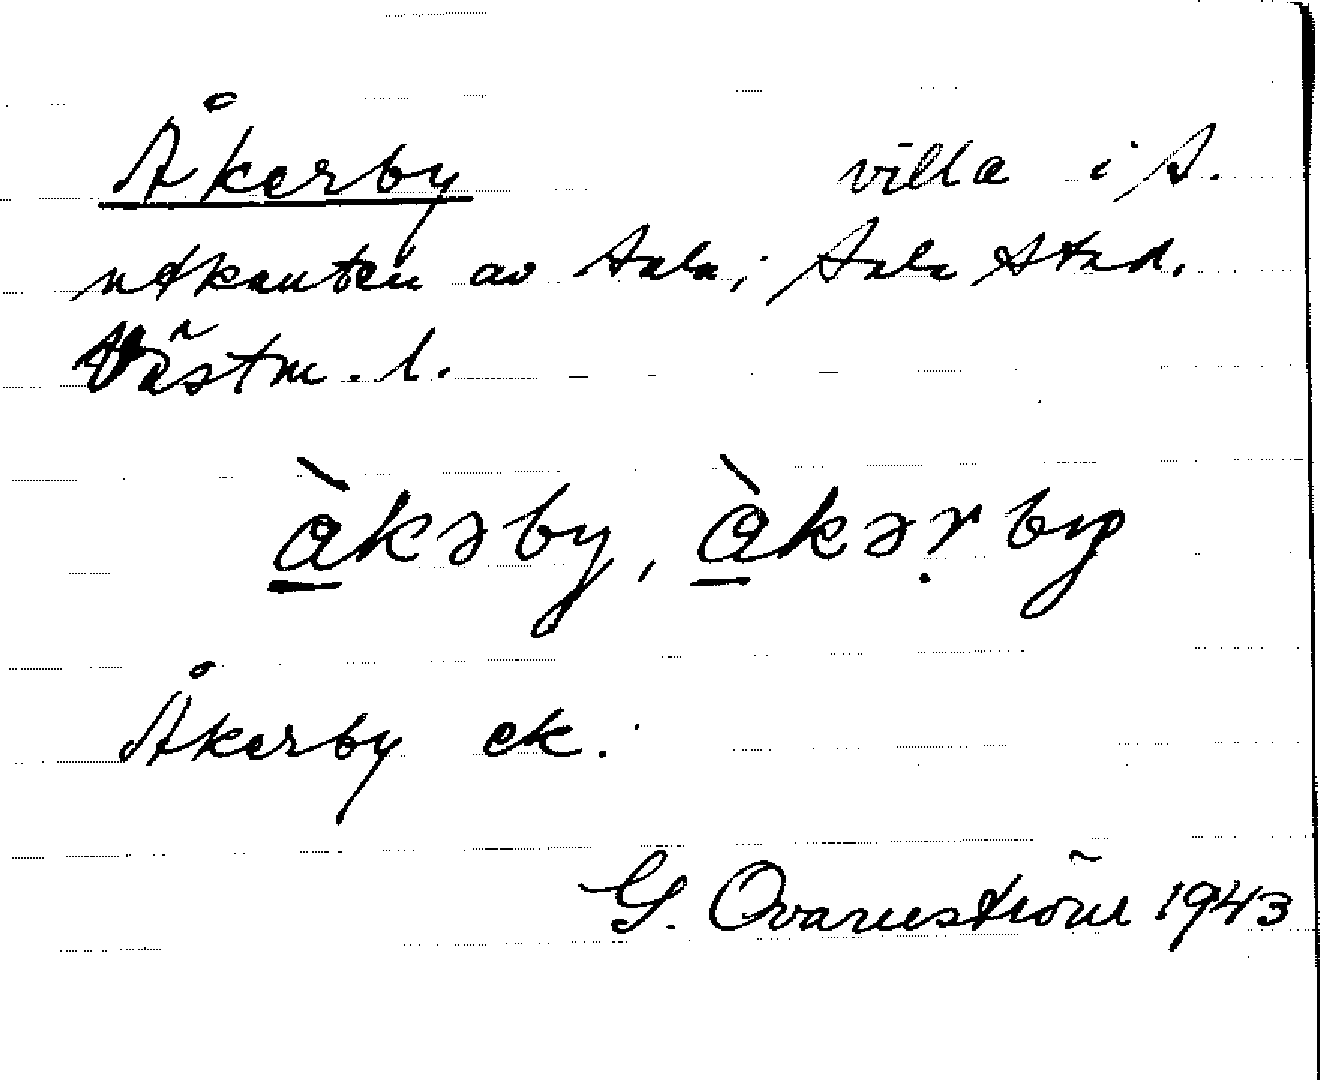 Åkerby villa i S.
utkanten av Sala, Sala stad.
Västm. l.
å̲̀kəby, å̲̀kəṛby
Åkerby ek.
G. Qvarnström 1943